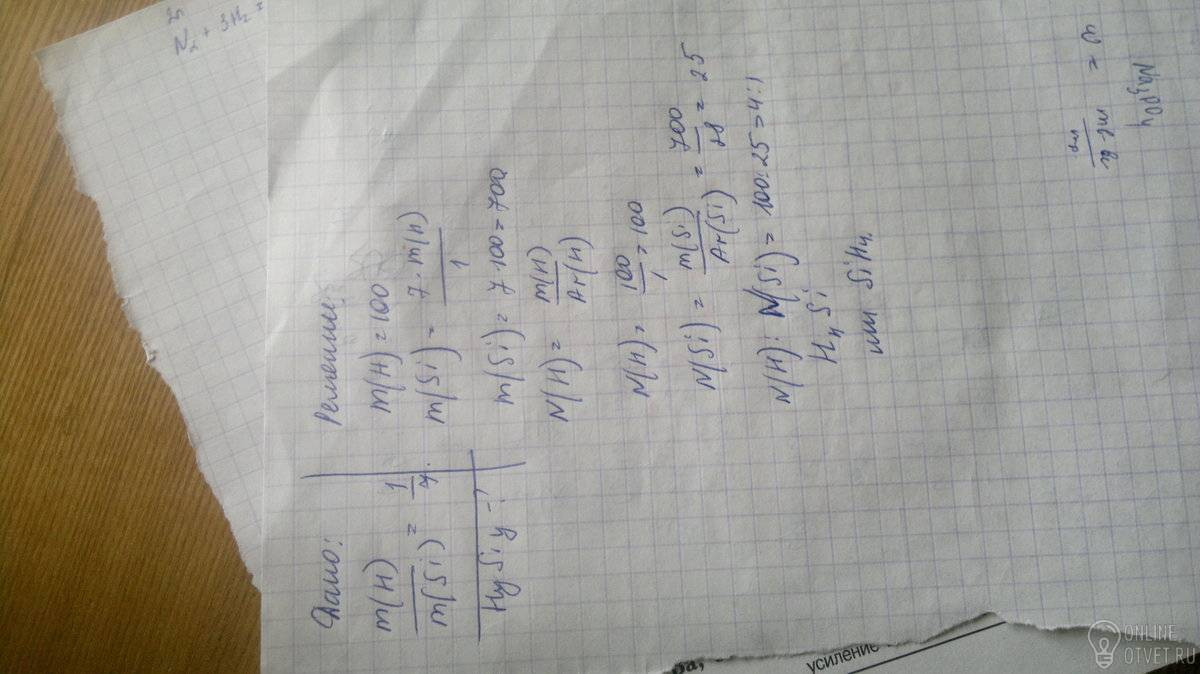 Дано:
m(H) / m(Si) = 1/7.
HySiy - ?
Решение:
m(H) = 100
m(Si) = 7·m(H) / 1
m(Si) = 7·100 = 700
N(H) = m(H) / Ar(H)
N(H) = 100 / 1 = 100
N(Si) = m(Si) / Ar(Si) = 700 / 28 = 25
N(H) : N(Si) = 100:25 = 4:1
H4Si
или SiH4.
N2 + 3H2 =
ω =
Na3PO4
усиление
ONLINE
OTVET.RU